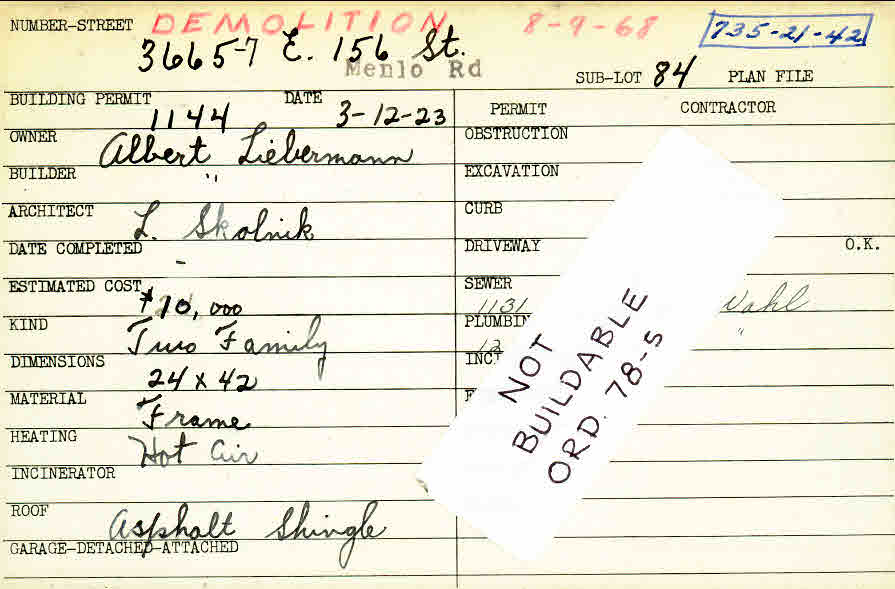 DEMOLITION 8-9-68 735-21-42
NUMBER-STREET 3665-7 E. 156 St.
Menlo Rd SUB-LOT 84 PLAN FILE
BUILDING PERMIT 1144 DATE 3-12-23
OWNER Albert Liebermann
BUILDER "
ARCHITECT L. Skolnik
DATE COMPLETED -
ESTIMATED COST $10,000
KIND Two Family
DIMENSIONS 24 x 42
MATERIAL Frame
HEATING Hot Air
INCINERATOR
ROOF Asphalt Shingle
GARAGE-DETACHED-ATTACHED
PERMIT CONTRACTOR
OBSTRUCTION
EXCAVATION
CURB
DRIVEWAY O.K.
SEWER 1131 Wahl
PLUMBIN 12 "
INC
NOT
BUILDABLE
ORD. 78-5